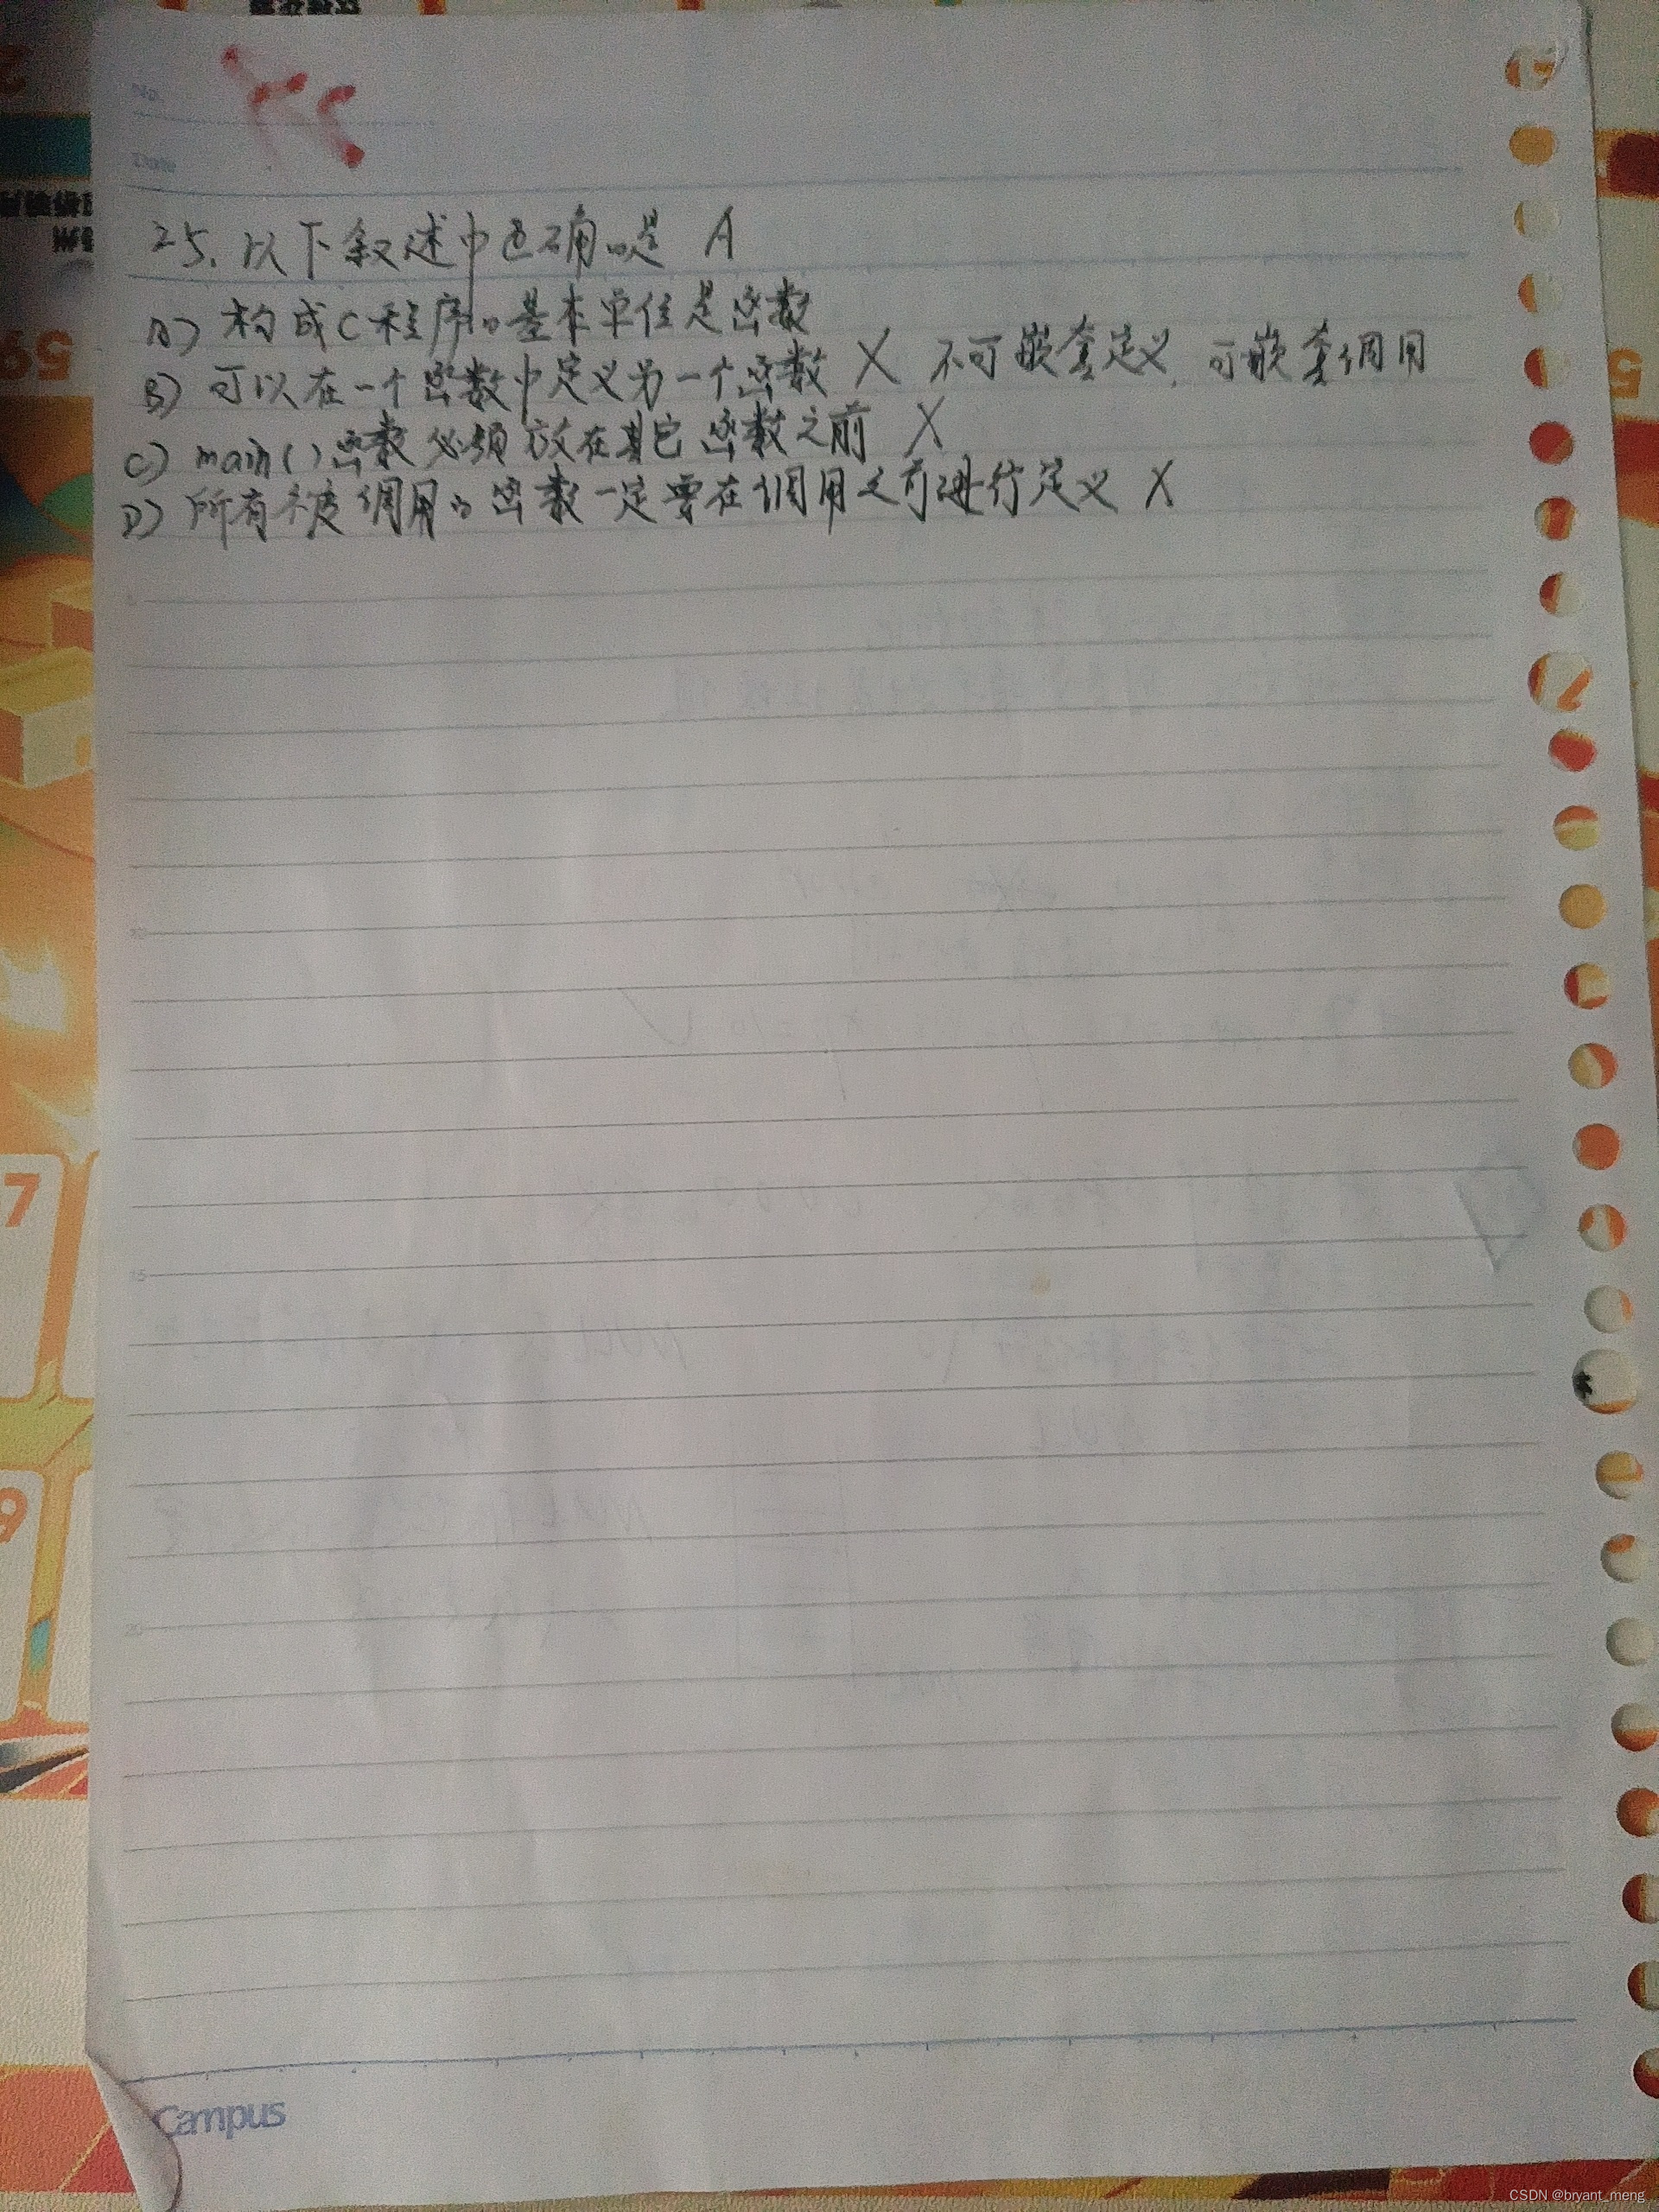 No.
Date
25. 以下叙述中正确的是 A
A) 构成C程序的基本单位是函数
B) 可以在一个函数中定义另一个函数 X 不可嵌套定义, 可嵌套调用
C) main()函数必须放在其它函数之前 X
D) 所有被调用的函数一定要在调用之前进行定义 X
Campus
CSDN @bryant_meng